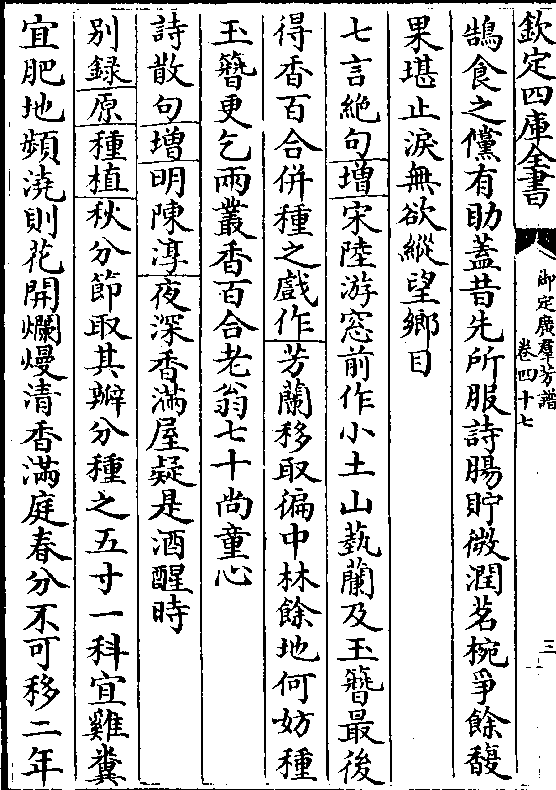 欽定四庫全書
御定廣羣芳譜
卷四十七
三
鵠食之儻有助蓋昔先所服詩腸貯微潤茗椀爭餘馥
果堪止淚無欲縱望鄉目
七言絶句增宋陸游窓前作小土山蓺蘭及玉簪最後
得香百合併種之戲作芳蘭移取徧中林餘地何妨種
玉簪更乞兩叢香百合老翁七十尚童心
詩散句增明陳淳夜深香滿屋疑是酒醒時
別録原種植秋分節取其瓣分種之五寸一科宜雞糞
宜肥地頻澆則花開爛熳清香滿庭春分不可移二年